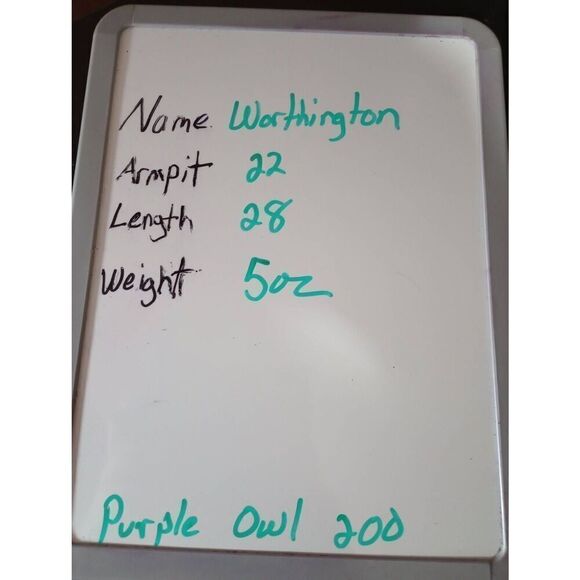 Name. Worthington
Armpit 22
Length 28
Weight 5oz
Purple Owl 200